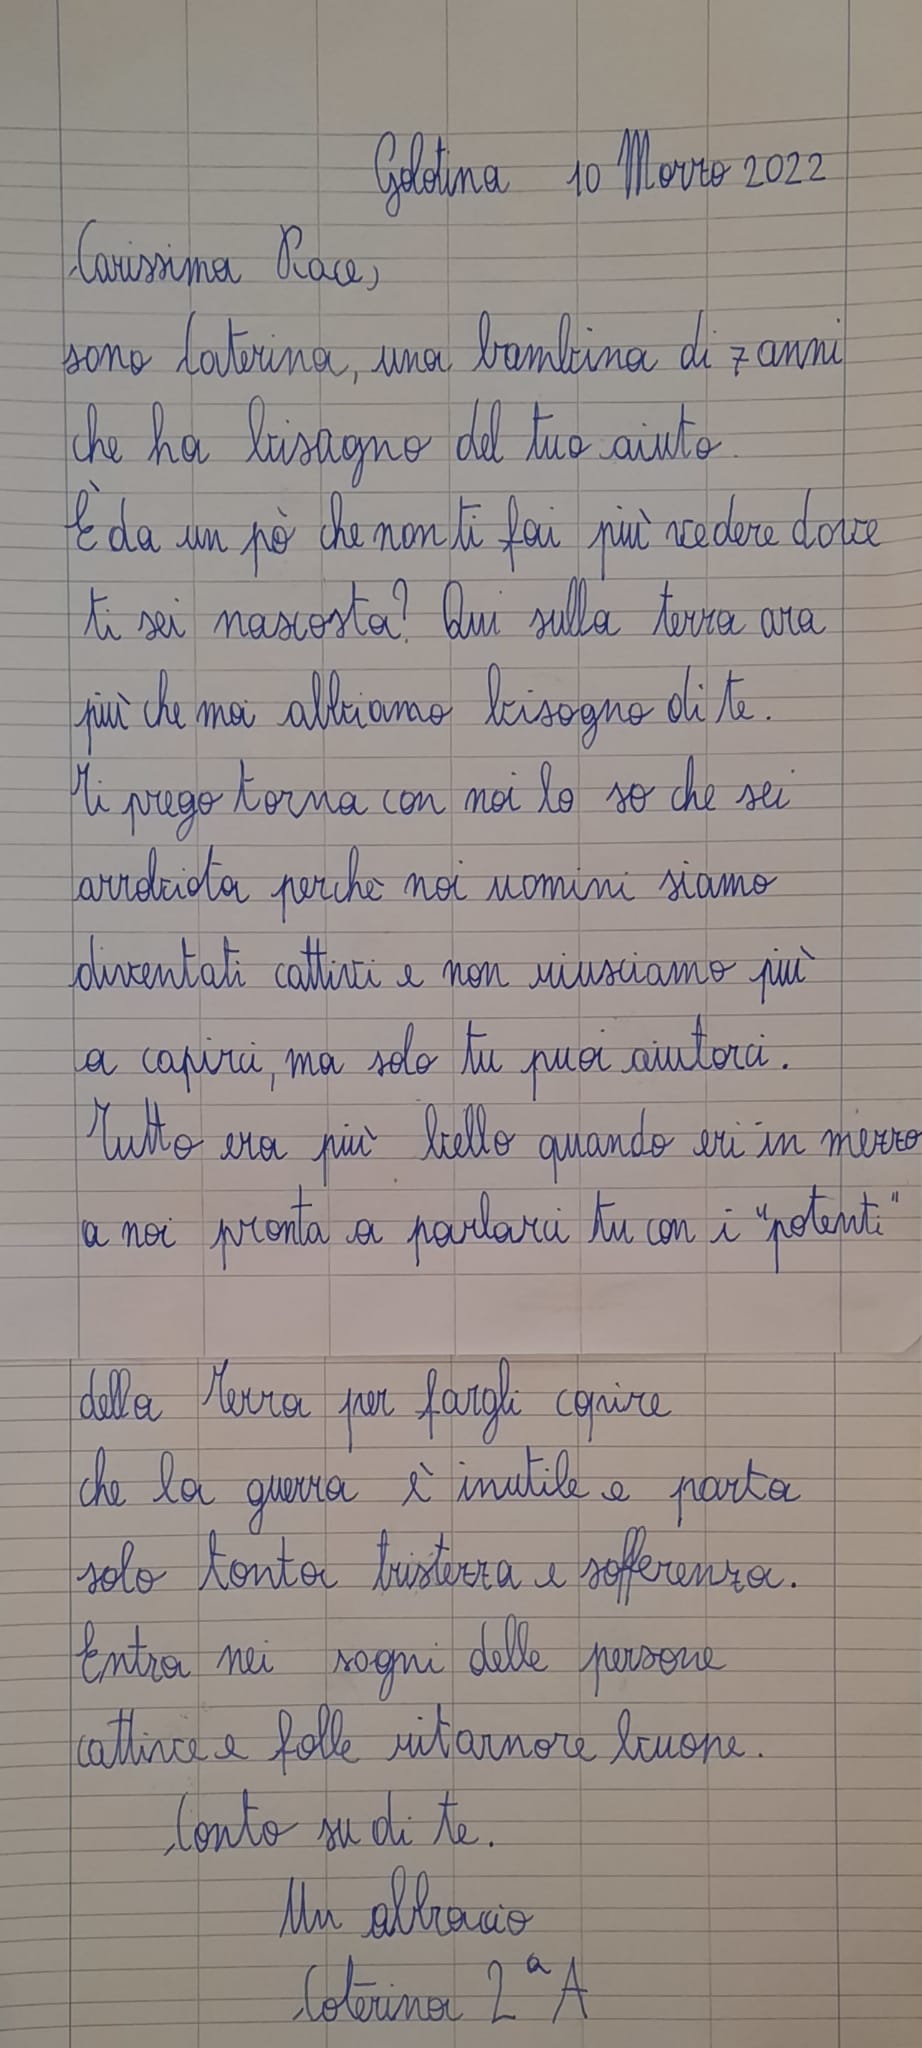 Galatina 10 Marzo 2022
Carissima Pace,
sono Caterina, una bambina di 7 anni
che ha bisogno del tuo aiuto.
È da un pò che non ti fai più vedere dove
ti sei nascosta? Qui sulla terra ora
più che mai abbiamo bisogno di te.
Ti prego torna con noi lo so che sei
arrabbiata perchè noi uomini siamo
diventati cattivi e non riusciamo più
a capirci, ma solo tu puoi aiutarci.
Tutto era più bello quando eri in mezzo
a noi pronta a parlarci tu con i "potenti"
della Terra per fargli capire
che la guerra è inutile e porta
solo tanta tristezza e sofferenza.
Entra nei sogni delle persone
cattive e falle ritornare buone.
Conto su di te.
Un abbraccio
Caterina 2ª A